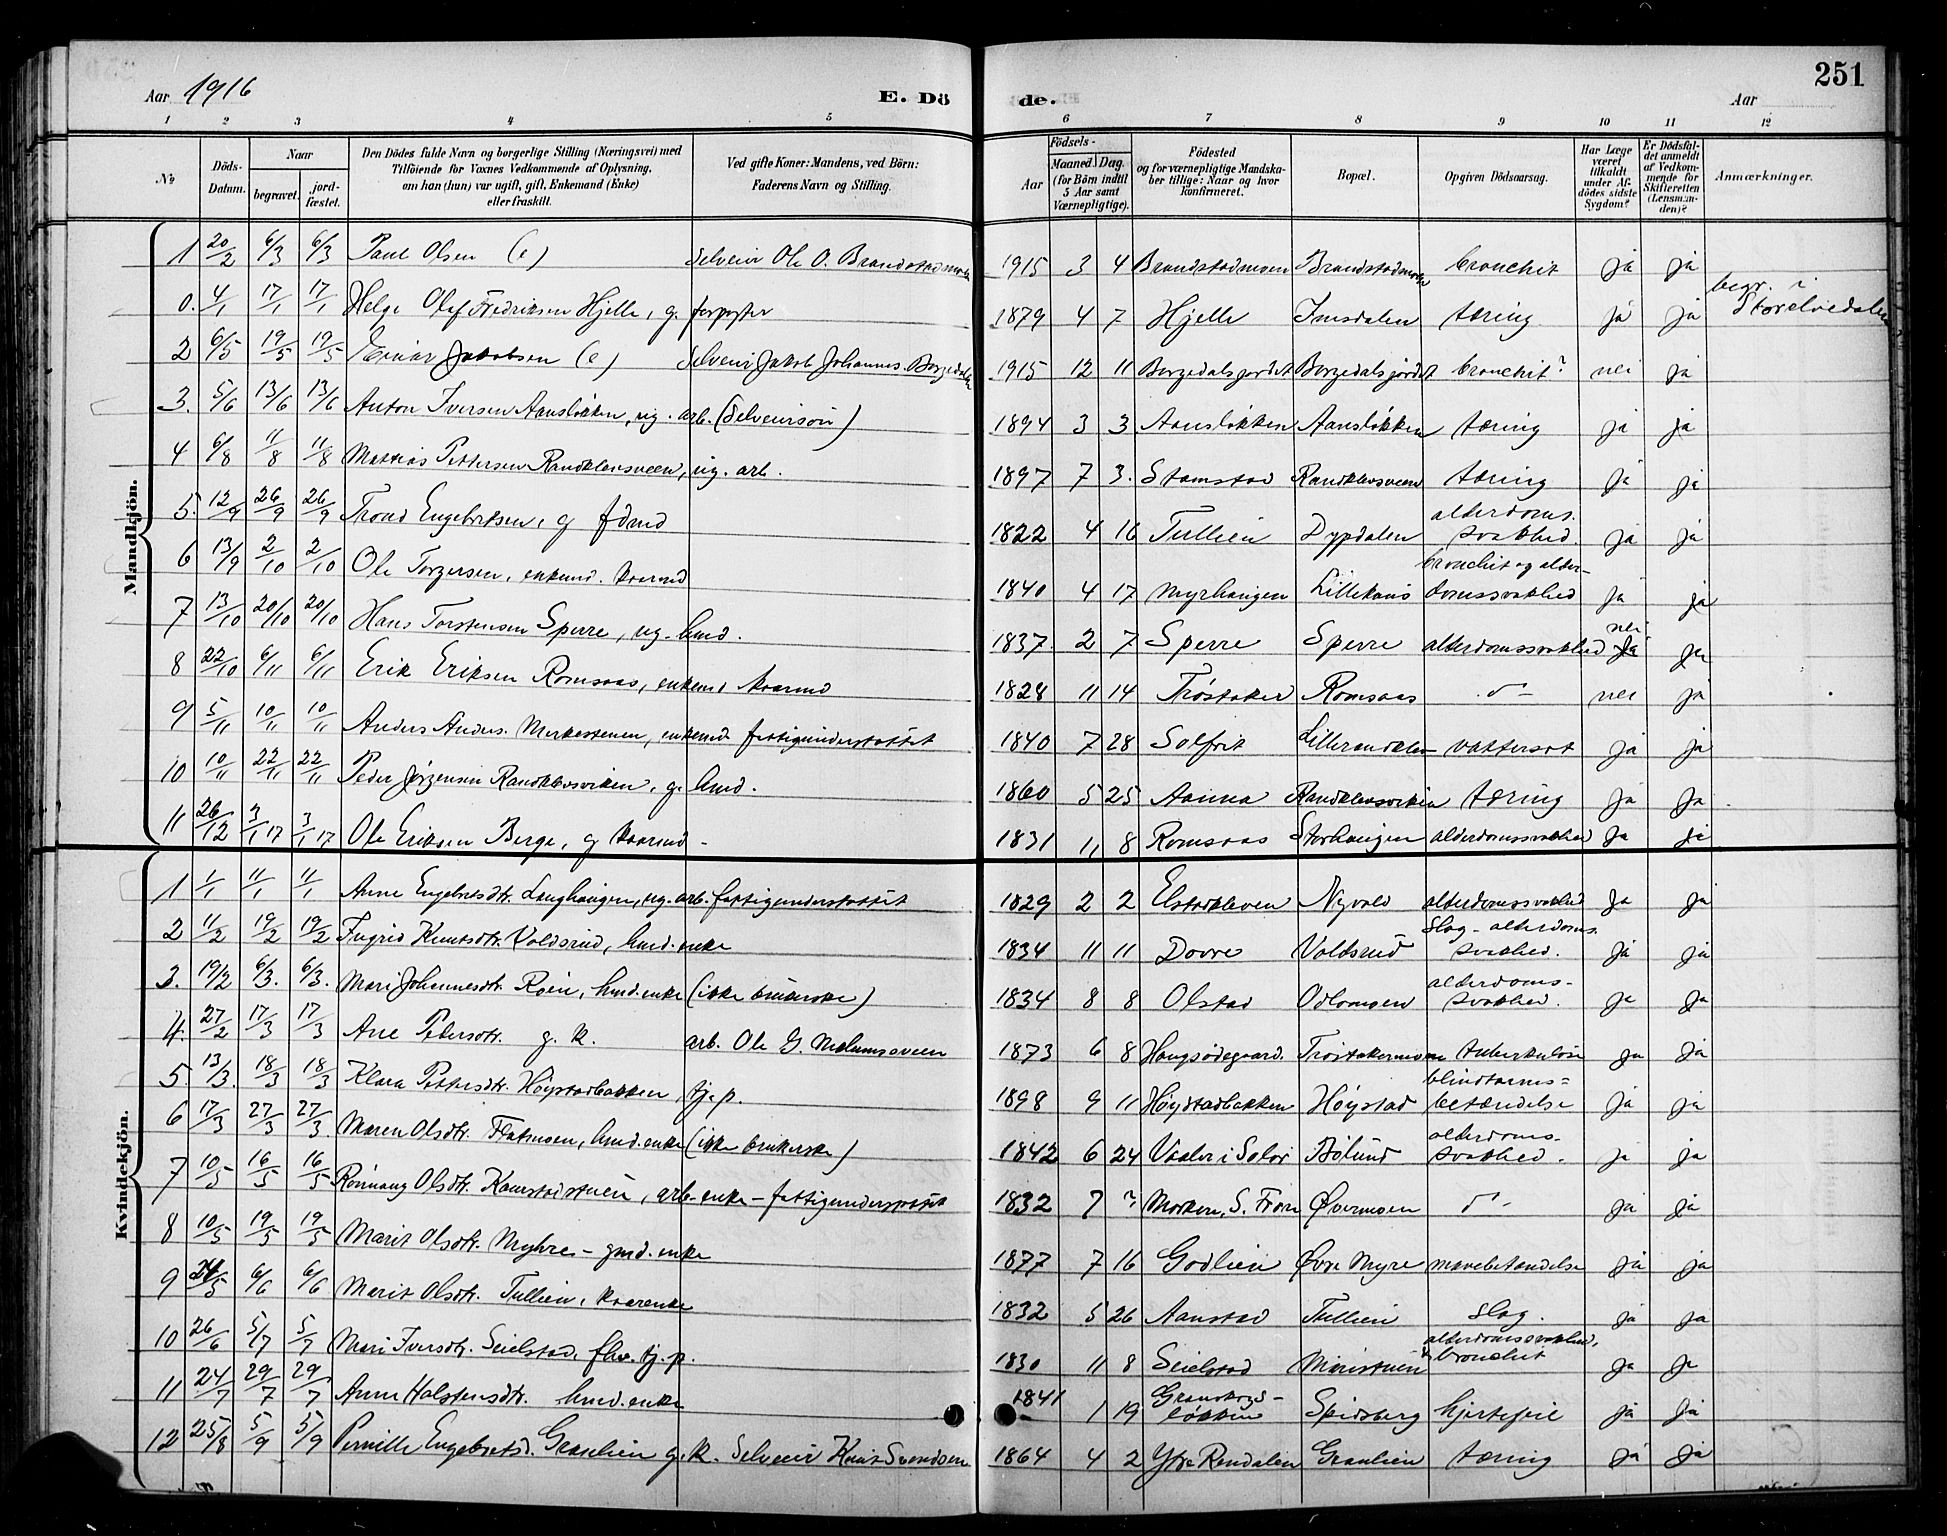 251
Aar 1916 E. Dö de. Aar
1 2 3 4 5 6 7 8 9 10 11 12
No Döds-Datum. Naar begravet. jord-fæstet. Den Dödes fulde Navn og borgerlige Stilling (Næringsvei) med Tilföiende for Voxnes Vedkommende af Oplysning, om han (hun) var ugift, gift, Enkemand (Enke) eller fraskilt. Ved gifte Koner: Mandens, ved Börn: Faderens Navn og Stilling. Födsels- Aar Maaned Dag. (for Börn indtil 5 Aar samt Værnepligtige). Födested og for værnepligtige Mandskaber tillige: Naar og hvor konfirmeret. Bopæl. Opgiven Dödsaarsag. Har Læge været tilkaldt under Afdödes sidste Sygdom? Er Dödsfaldet anmeldt af Vedkommende for Skifteretten (Lensmanden)? Anmærkninger.
Mandkjön.
1 20/2 6/3 6/3 Paul Olsen (e) Selveier Ole O. Brandstadmoen 1915 3 4 Brandstadmoen Brandstadmoen bronchit ja ja
0. 4/1 17/1 17/1 Helge Olaf Fredriksen Hjelle, g. forpagter 1879 4 7 Hjelle Imsdalen tæring ja ja begr. i Storelvedalen
2 6/5 19/5 19/5 Einar Jakobsen (e) Selveier Jakob Johannes. Borgedalen 1915 12 11 Borgedalsjordet Borgedalsjordet bronchit? nei ja
3. 5/6 13/6 13/6 Anton Iversen Aansløkken, ug. arb. (Selveiersøn) 1894 3 3 Aansløkken Aansløkken tæring ja ja
4 6/8 11/8 11/8 Mattias Pettersen Randklevsveen, ug. arb. 1897 7 3. Stamstad Randklevsveen tæring ja ja
5. 12/9 26/9 26/9 Trond Engebretsen, g fdmd 1822 4 16 Tullien Dypdalen alderdoms-svakhed. ja ja
6 13/9 2/10 2/10 Ole Torgersen, enkemd. kaarmd 1840 4 17 Myrhaugen Lillekaus bronchit og alderdomssvakhed ja ja
7 13/10 20/10 20/10 Hans Torstensen Sperre, ug. hmd. 1837. 2 7 Sperre Sperre alderdomssvakhed nei ja
8 22/10 6/11 6/11 Erik Eriksen Romsaas, enkemd kaarmd 1828 11 14 Trøstaker Romsaas do nei ja
9 5/11 10/11 10/11 Anders Anders. Merkestenen, enkemd fattigunderstøttet 1840 7 28 Solfrit Lillerandklev vattersot ja ja
10 10/11 22/11 22/11 Peder Jørgensen Randklevsviken, g. hmd. 1860 5 25 Aanna Randklevsviken tæring ja ja
11 26/12 3/1 17 3/1 17 Ole Eriksen Berge, g kaarmd 1831 11 8 Romsaas Storhaugen alderdomssvakhed ja ja
Kvindekjön.
1 1/1 11/1 11/1 Anne Engebretsdtr. Langhaugen, ug. arb. fattigunderstøttet 1829 2 2 Elstadkleven Nyvold alderdomssvakhed ja ja
2 11/2 19/2 19/2 Ingrid Knutsdtr. Voldsrud, hmd. enke 1834 11 11 Dovre Voldsrud Slag - alderdoms-svakhed. ja ja
3. 19/2 6/3. 6/3. Mari Johannesdtr. Røen, hmd. enke (ikke brukerske) 1834 8 8 Olstad Odlomoen alderdoms-svakhed. ja ja
4. 27/2 17/3 17/3 Ane Petersdtr. g. k. arb. Ole G. Melumsveen 1873 6 8 Haugsødegaard. Trøstakermoen tuberkulose ja ja
5. 13/3. 18/3 18/3 Klara Pettersdtr. Høystadbakken, tj. p. 1898 9 11 Høystadbakken Høystad blindtarms-betændelse ja ja
6 17/3 27/3 27/3. Maren Olsdtr. Flatmoen, hmd. enke (ikke brukerske) 1842 6 24 Vaaler i Solør Bølund alderdoms-svakhed. ja ja
7 10/5 16/5 16/5 Rønnaug Olsdtr. Kamstadstuen, arb. enke - fattigunderstøttet 1832 7 ? Morken, S. Fron Øvermoen do ja ja
8 10/5 19/5 19/5 Marit Olsdtr. Myhre - gmd. enke 1877 7 16 Godlien Øvre Myre mavebetændelse ja ja
9 24/5 6/6 6/6 Marit Olsdtr. Tullien, kaarenke 1832 5 26 Aanstad Tullien Slag. ja ja
10 26/6 5/7 5/7 Mari Iversdtr. Seielstad, fhv. tj. p. 1830 11 8 Seielstad Maristuen alderdomssvakhed, bronchit ja ja
11 24/7 29/7 29/7 Anne Halstensdtr. hmd. enke 1841 1 19 Granskogsløkken Spidsberg hjertefeil ja ja
12 25/8 5/9 5/9 Pernille Engebretsd. Graulien g. k. Selveier Knut Svendsen 1864 4 2 Ytre Rendalen Graulien tæring ja ja